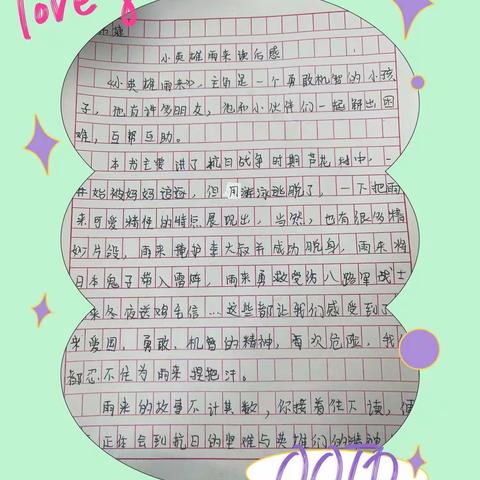 love
小英雄雨来读后感
《小英雄雨来》,主角是一个勇敢机智的小孩
子,他有许多朋友,他和小伙伴们一起解出困
难,互帮互助。
本书主要讲了抗日战争时期芦花村中,一
开始被妈妈追逐,但用游泳逃脱了,一下把雨
来可爱精怪的特点展现出,当然,也有很多精
彩片段,雨来掩护李大叔并成功脱身,雨来将
日本鬼子带入雷阵,雨来勇敢受伤八路军战士
来冬夜送鸡毛信...这些都让我们感受到了
来爱国,勇敢,机智的精神,每次危险,我
都忍不住为雨来捏把汗。
雨来的故事不计其数,你接着往下读,便
正体会到抗日的坚难与英雄们的精神
OOTD